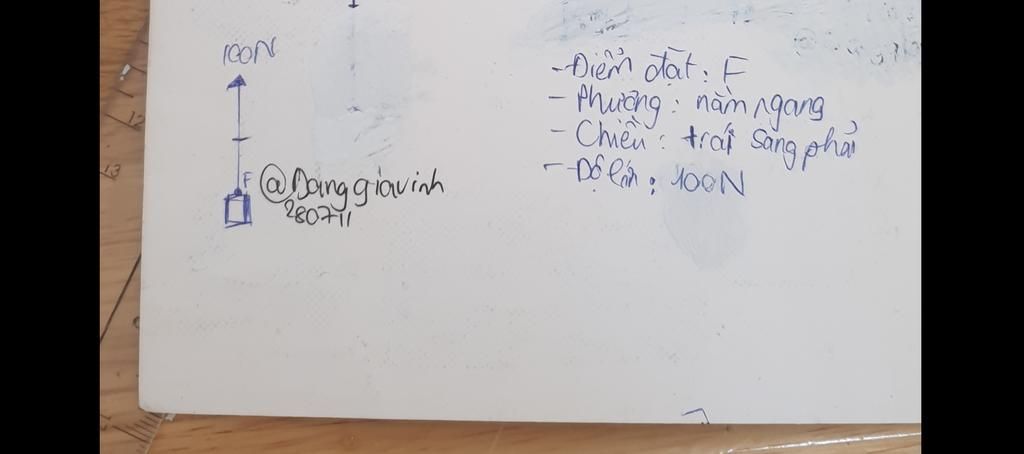 100N
F
@Danggiavinh
280711
- Điểm đặt: F
- Phương: nằm ngang
- Chiều: trái sang phải
- Độ lớn: 100N
12
13